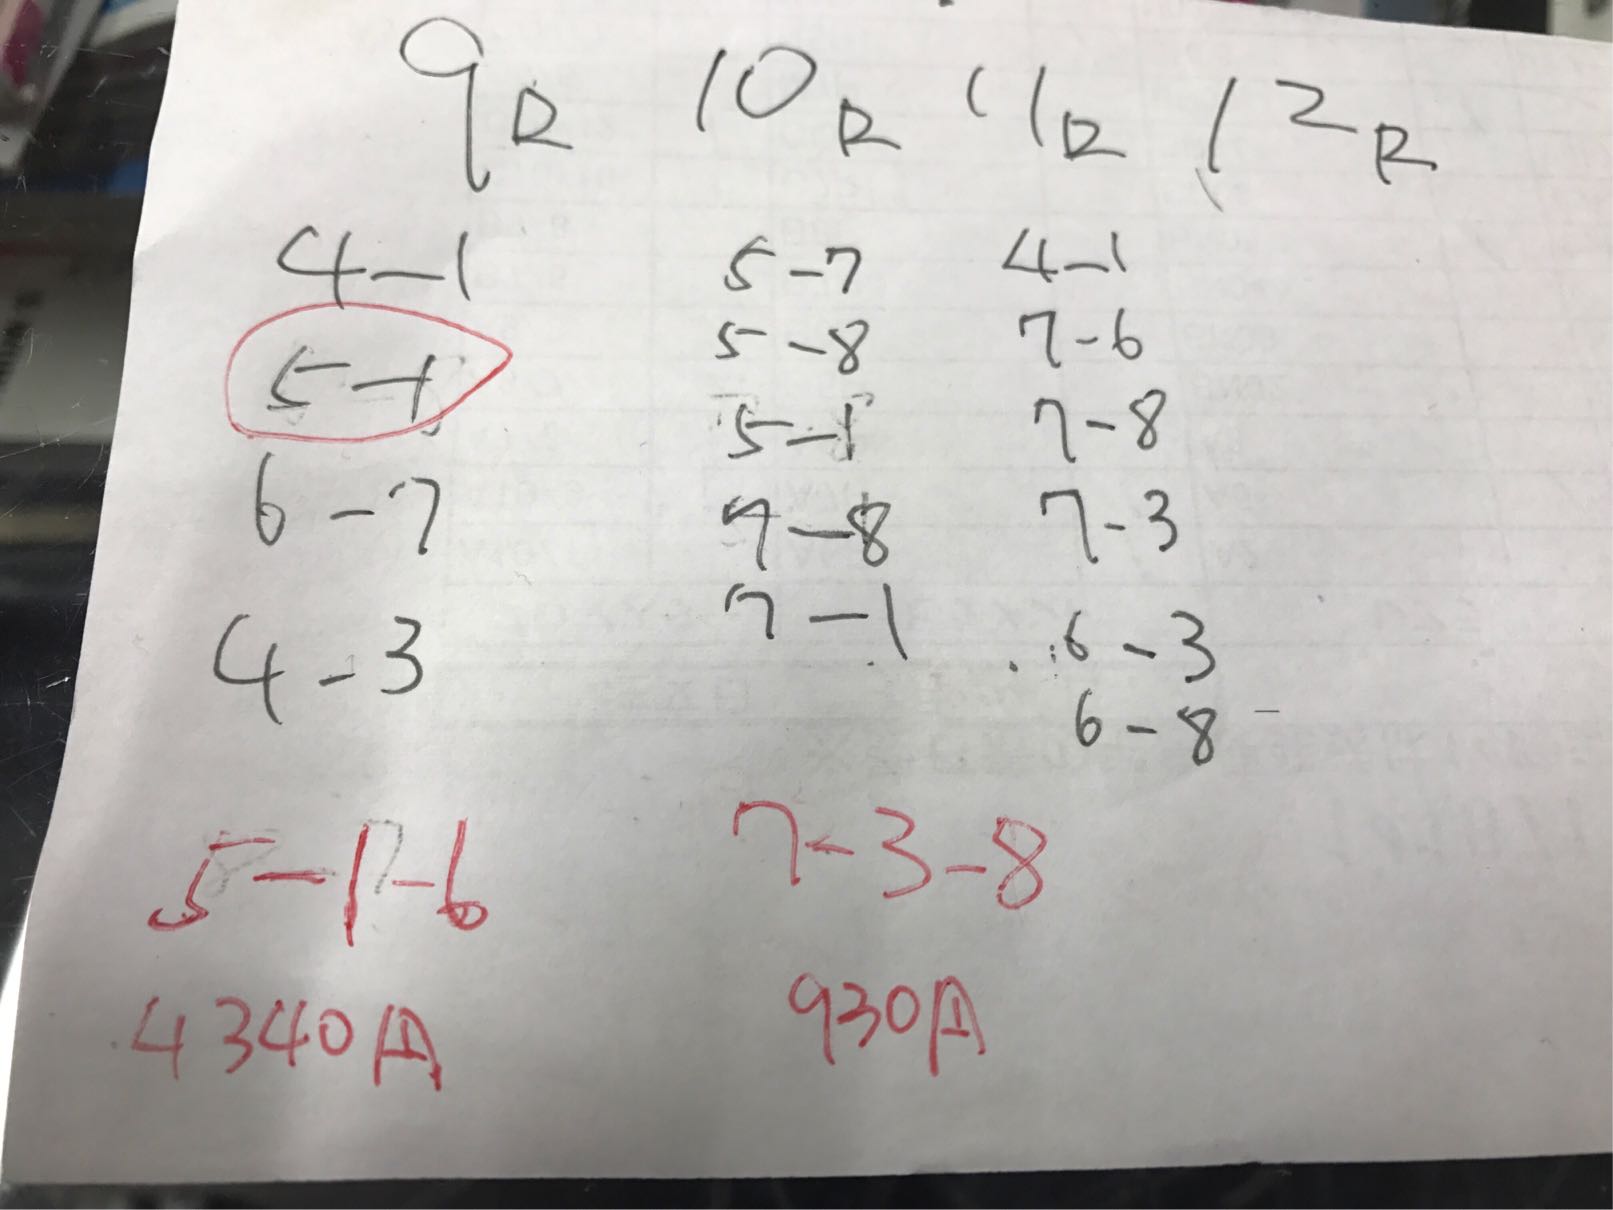 9R 10R 11R 12R
4-1 5-7 4-1
5-1 5-8 7-6
6-7 5-1 7-8
4-3 7-8 7-3
7-1 6-3
6-8
5-1-6 7-3-8
4340円 930円